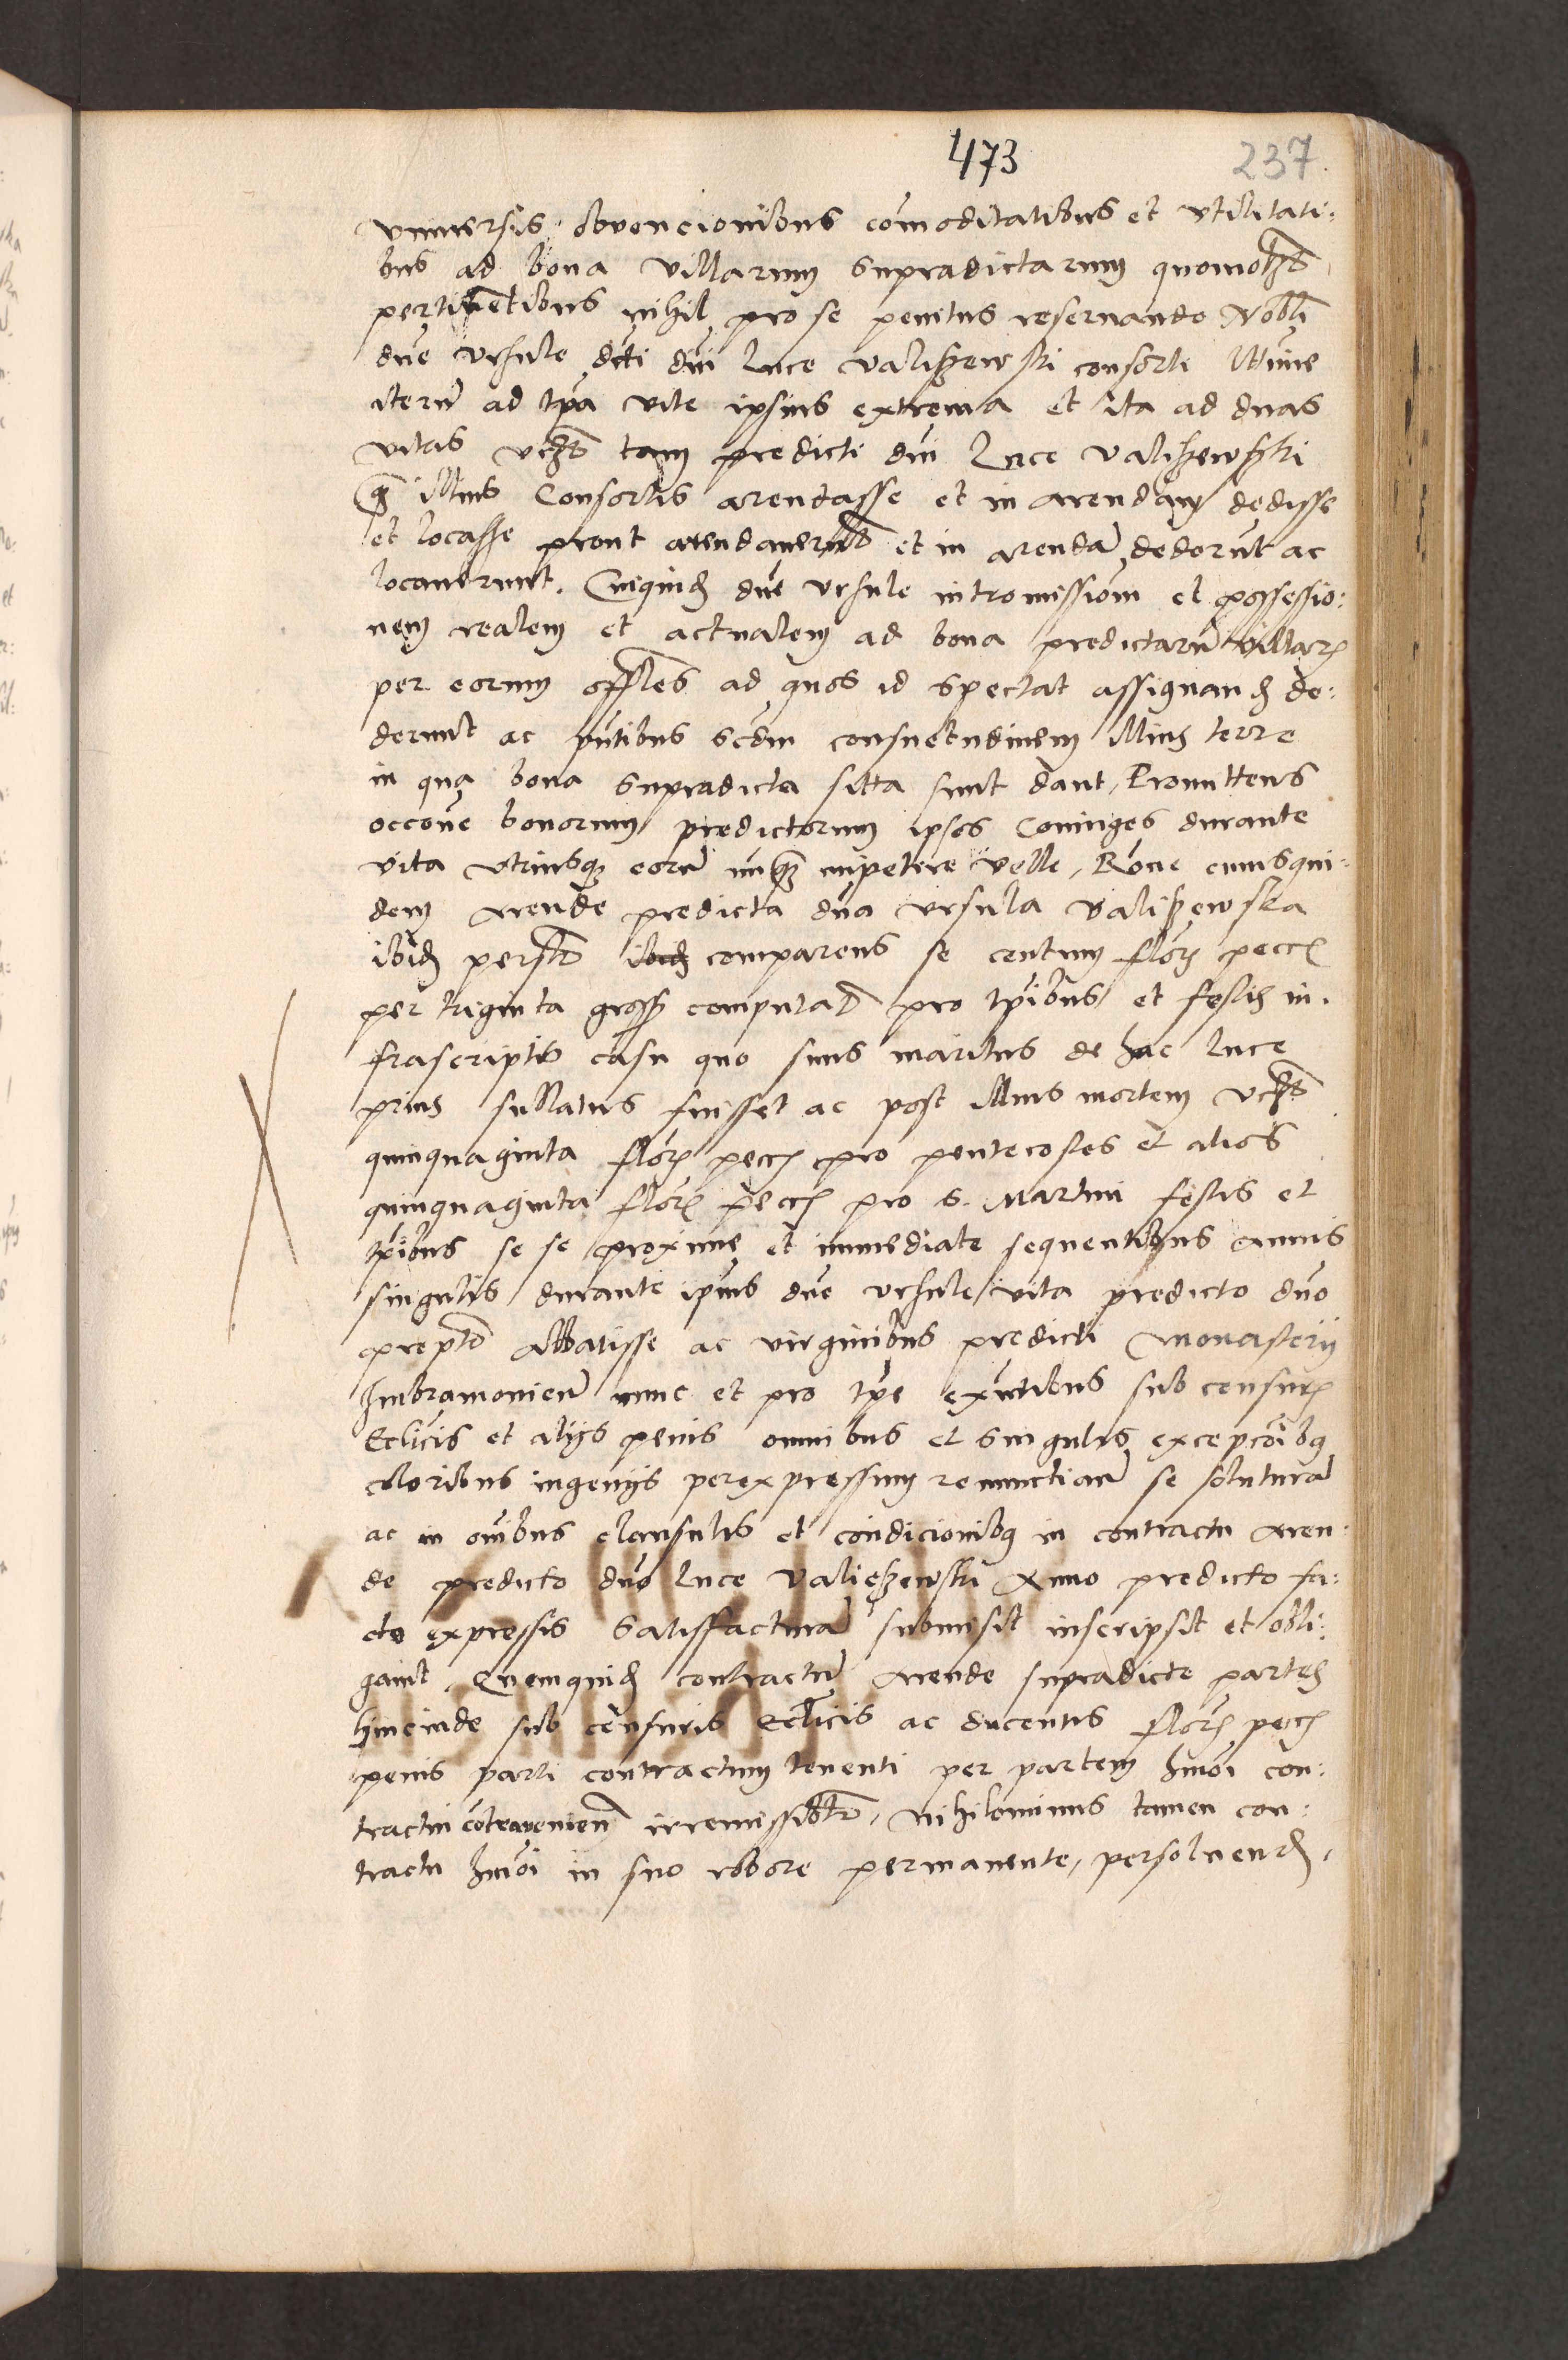 473 237
vniuersis obuencionibus comoditatibus et vtilitati:
bus ad bona villarum supradictarum quomolzt
pertinetibus nihil pro se penitus reseruando Nobli
dne Vrsule dcti dni Luce Valiszewski consorti
iteru ad tpa vite ipsius extrema et ita ad duas
vitas vczt tam predicti dni Luce Valiszewszki
q illius Consortis arendasse et in arendam dedisse
et locasse prout arendauerut et in arenda dederut ac
locauerunt. Cuiquid dne Vrsule intromissiom et possessio:
nem realem et actualem ad bona predictaru villar
per eorum offles ad quos id spectat assignand de:
derunt ac pntibus scdm consuetudinem illius terre
in qua bona supradicta sitta sunt dant, Promittens
occone bonorum predictorum ipsos Coniuges durante
vita vtriusq eoru nuq impetere velle, Rone cuiusqui:
dem Arende predicta dna Vrsula Valiszewska
ibid persolr comparens se centum flor pecc
per triginta gross computad pro tpibus et festis in:
frascriptis casu quo suus maritus de hac luce
prius sublatus fuisset ac post illius mortem vczt
quinquaginta flor pecc pro pentecostes et alios
quinquaginta flor pecc pro S. Martini festis et
tpibus se se proxime et immediate sequentibus Annis
singulis durante ipius dne Vrsule vita predicto dno
prepto Abbatisse ac virginibus predicti Monasterij
Imbramonien nunc et pro tpe exntibus sub censur
Ecclicis et alijs penis omnibus et singulis excepcoibq
coloribus ingenijs perexpressum renunctian se solutura
ac in oibus clausulis et condicionibq in contractu Aren:
de predicto dno Luce Valieszewski Anno predicto fa:
cto expressis satisffactura submisit inscripsit et obli:
gauit, Quemquid contractu Arende supradicte partes
hincinde sub censuris Ecclicis ac ducentis flor pecc
penis parti contractum tenenti per partem hmoi con:
tractui cotrauenien irremissiblr, nihilominus tamen con:
tractu hmoi in suo robore permanente, persoluend,